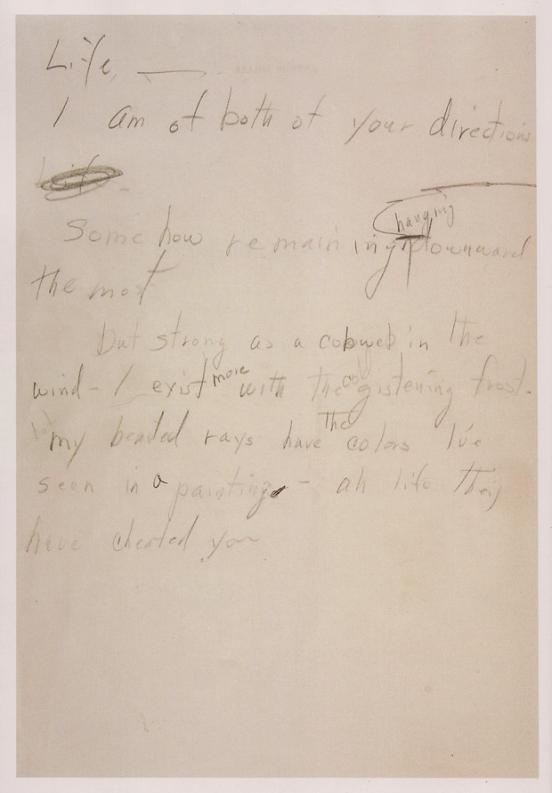 Life, ——
I am of both of your directions
Life
Somehow remaining hanging downward
the most
But strong as a cobweb in the
wind - I exist more with the cold gistening frost.
my beaded rays have the colors I've
seen in a painting - ah life they
have cheated you